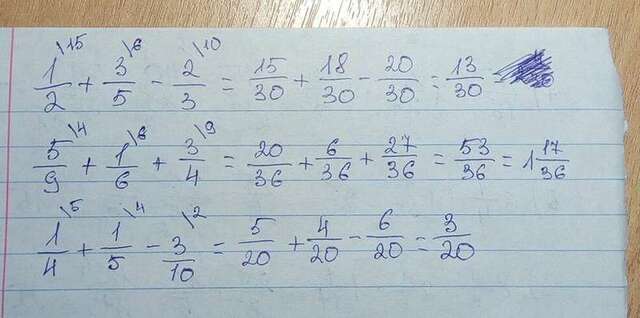 1/2 \15 + 3/5 \6 - 2/3 \10 = 15/30 + 18/30 - 20/30 = 13/30
5/9 \4 + 1/6 \6 + 3/4 \9 = 20/36 + 6/36 + 27/36 = 53/36 = 1 17/36
1/4 \5 + 1/5 \4 - 3/10 \2 = 5/20 + 4/20 - 6/20 = 3/20